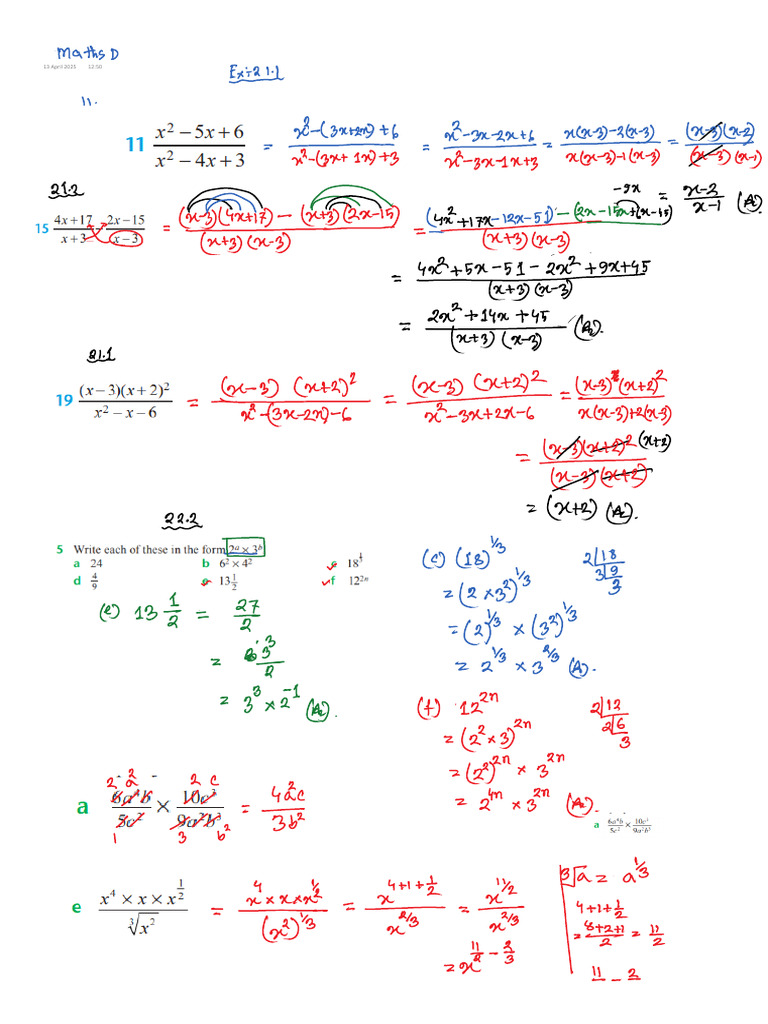 Maths D
13 April 2021 12:50
Ex:- 21.1
11.
11 (x² − 5x + 6)/(x² − 4x + 3) = (x² − (3x+2x) + 6)/(x² − (3x+1x) + 3) = (x² − 3x − 2x + 6)/(x² − 3x − 1x + 3) = (x(x−3) − 2(x−3))/(x(x−3) − 1(x−3)) = ((x−3)(x−2))/((x−3)(x−1))
= (x−2)/(x−1) (A).
21.2
15 (4x+17)/(x+3) − (2x−15)/(x−3) = ((x−3)(4x+17) − (x+3)(2x−15))/((x+3)(x−3)) = ((4x² + 17x − 12x − 51) − (2x − 15x + (x−15)))/((x+3)(x−3))
−9x
= (4x² + 5x − 51 − 2x² + 9x + 45)/((x+3)(x−3))
= (2x² + 14x + 45)/((x+3)(x−3)) (A).
21.1
19 ((x−3)(x+2)²)/(x² − x − 6) = ((x−3)(x+2)²)/(x² − (3x−2x) − 6) = ((x−3)(x+2)²)/(x² − 3x + 2x − 6) = ((x−3)(x+2)²)/(x(x−3)+2(x−3))
= ((x−3)(x+2)² (x+2))/((x−3)(x+2))
= (x+2) (A).
22.2
5 Write each of these in the form 2ᵃ × 3ᵇ
a 24 b 6² × 4² c 18^(1/3)
d 4/9 e 13 1/2 f 12²ⁿ
(c) (18)^(1/3)
= (2 × 3²)^(1/3)
= (2)^(1/3) × (3²)^(1/3)
= 2^(1/3) × 3^(2/3) (A).
2 | 18
3 | 9
3
(e) 13 1/2 = 27/2
= 3³/2
= 3³ × 2⁻¹ (A).
(f) 12²ⁿ
= (2² × 3)²ⁿ
= (2²)²ⁿ × 3²ⁿ
= 2⁴ⁿ × 3²ⁿ (A).
2 | 12
2 | 6
3
2 a² 2 c
a (6a⁴b)/(5c²) × (10c³)/(9a²b³) = (4a²c)/(3b²)
1 3 b²
a (6a⁴b)/(5c²) × (10c³)/(9a²b³)
e (x⁴ × x × x^(1/2))/∛x² = (x⁴ × x × x^(1/2))/(x²)^(1/3) = x^(4+1+1/2)/x^(2/3) = x^(11/2)/x^(2/3)
= x^(11/2 − 2/3)
∛a = a^(1/3)
4+1+1/2
= (8+2+1)/2 = 11/2
11 − 2